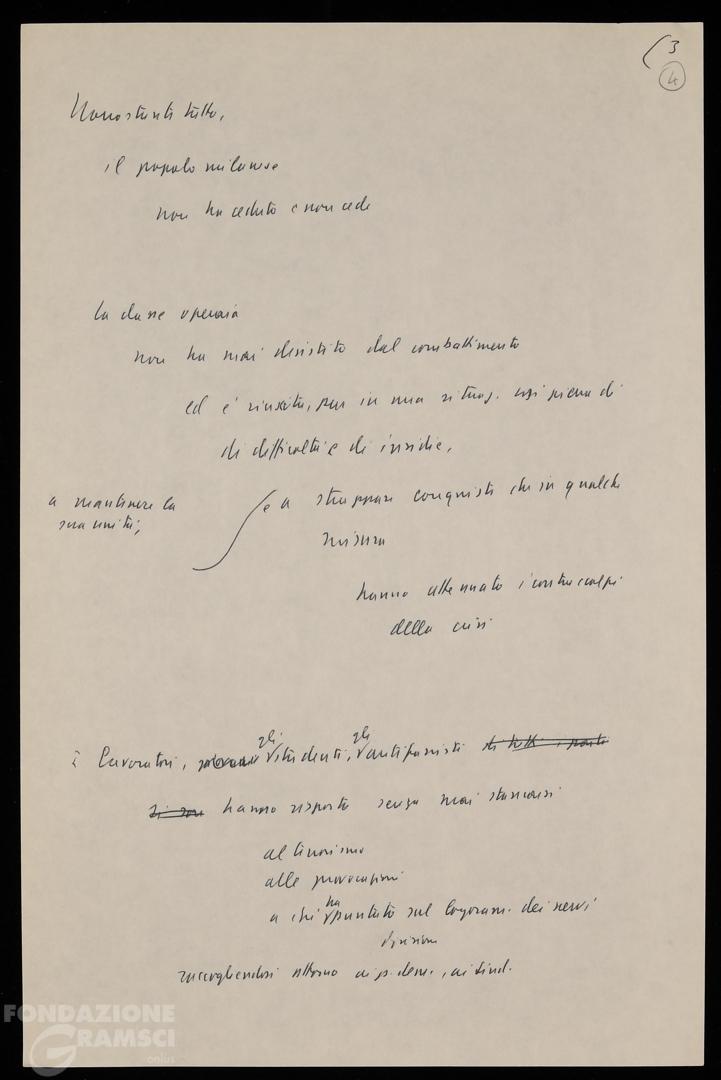 3
4
Nonostante tutto,
il popolo milanese
non ha ceduto e non cede
La classe operaia
non ha mai desistito dal combattimento
ed è riuscita, pur in una situaz. così piena di
di difficoltà e di insidie,
a mantenere la
sua unità;
e a strappare conquiste che in qualche
misura
hanno attenuato i contraccolpi
della crisi
I lavoratori, gli studenti, gli antifascisti di tutti i partiti
si sono hanno risposto senza mai stancarsi
al terrorismo
alle provocazioni
a chi ha puntato sul logoram. dei nervi
divisione
raccogliendosi attorno ai p. dem., ai sind.
FONDAZIONE
GRAMSCI
onlus